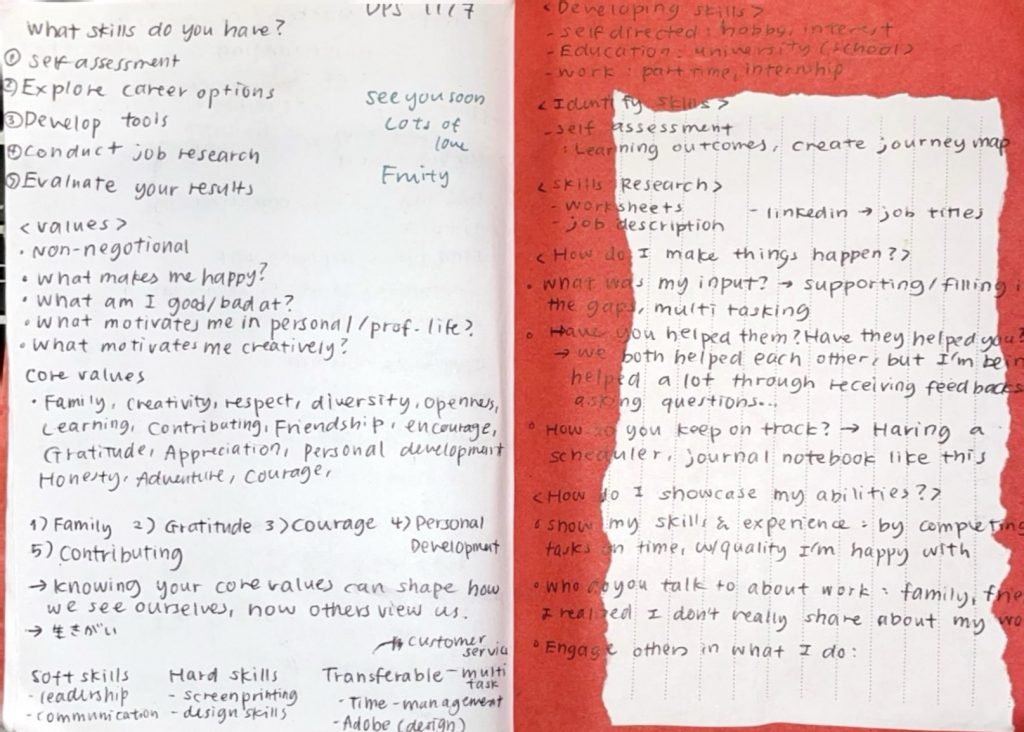 DPS 11/7
What skills do you have?
① self assessment
② Explore career options
③ Develop tools
④ Conduct job research
⑤ Evaluate your results
see you soon
Lots of
love
Fruity
<values>
• Non-negotional
• What makes me happy?
• What am I good/bad at?
• What motivates me in personal/prof. life?
• What motivates me creatively?
Core values
• Family, creativity, respect, diversity, openness,
Learning, Contributing, Friendship, encourage,
Gratitude, Appreciation, Personal development
Honesty, Adventure, Courage,
1) Family 2) Gratitude 3) Courage 4) Personal
Development
5) Contributing
→ Knowing your core values can shape how
we see ourselves, how others view us.
→ 生きがい
Soft skills
- leadership
- communication
Hard skills
- screenprinting
- design skills
customer
servic
Transferable - multi
task
- Time-management
- Adobe (design)
<Developing skills>
- self directed : hobby, interest
- Education : university (school)
- work : part time, internship
<Identify skills>
- self assessment
: Learning outcomes, create journey map
<skills Research>
- worksheets
- linkedin → job titles
- job description
<How do I make things happen?>
• What was my input? → supporting/filling i
the gaps, multi tasking
• Have you helped them? Have they helped you?
→ we both helped each other, but I'm bein
helped a lot through receiving feedbacks
asking questions...
• How do you keep on track? → Having a
scheduler, journal notebook like this
<How do I showcase my abilities?>
• Show my skills & experience : by completing
tasks on time, w/quality I'm happy with
• who do you talk to about work : family, frie
I realized I don't really share about my wo
• Engage others in what I do :